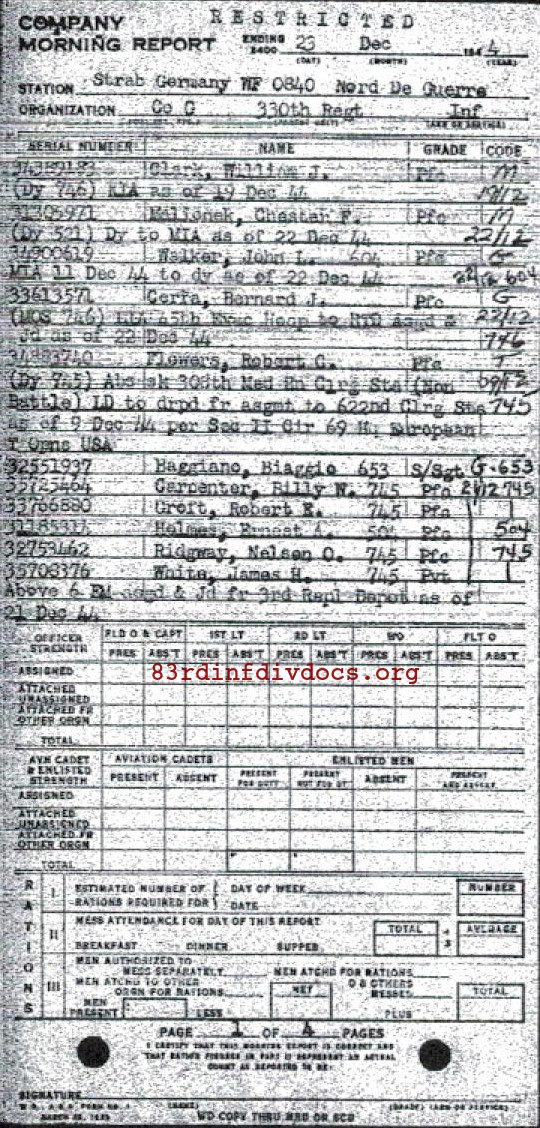 RESTRICTED
COMPANY
MORNING REPORT
ENDING 2400 23 Dec 1944
(DAY) (MONTH) (YEAR)
STATION Strab Germany WF 0840 Nord De Guerre
ORGANIZATION Co C 330th Regt Inf
SERIAL NUMBER NAME GRADE CODE
34389183 Clark, William J. Pfc M
(Dy 746) MIA as of 19 Dec 44
31305971 Malionek, Chester F. Pfc M
(Dy 521) Dy to MIA as of 22 Dec 44 22/12
34900619 Walker, John L. 604 Pfc G
MIA 11 Dec 44 to dy as of 22 Dec 44 22/12 604
33613571 Cerra, Bernard J. Pfc G
(MOS 746) 45th Evac Hosp to RTD Asgd & 22/12
Jd as of 22 Dec 44 746
Flowers, Robert C. Pfc T
(Dy 745) Abs sk 308th Med Bn Clrg Sta (Non
Battle) LD to drpd fr asgmt to 622nd Clrg Sta 745
as of 9 Dec 44 per Sec II Cir 69 European
T Opns USA
32551937 Baggiano, Biaggio 653 S/Sgt G-653
35725464 Carpenter, Billy W. 745 Pfc 21/12 745
33706880 Croft, Robert E. 745 Pfc
Holmes, Ernest A. 504 Pfc 504
32753462 Ridgway, Nelson O. 745 Pfc 745
35708376 White, James H. 745 Pvt
Above 6 EM asgd & Jd fr 3rd Repl Depot as of
21 Dec 44
OFFICER STRENGTH FLD O & CAPT 1ST LT 2D LT WO FLT O
PRES ABS'T PRES ABS'T PRES ABS'T PRES ABS'T PRES ABS'T
ASSIGNED
83rdinfdivdocs.org
ATTACHED UNASSIGNED
ATTACHED FR OTHER ORGN
TOTAL
AVN CADET & ENLISTED STRENGTH AVIATION CADETS ENLISTED MEN
PRESENT ABSENT PRESENT FOR DUTY PRESENT NOT FOR DY ABSENT PRESENT AND ABSENT
ASSIGNED
ATTACHED UNASSIGNED
ATTACHED FR OTHER ORGN
TOTAL
RATIONS
I ESTIMATED NUMBER OF RATIONS REQUIRED FOR DAY OF WEEK NUMBER
DATE
II MESS ATTENDANCE FOR DAY OF THIS REPORT TOTAL ÷ 3 AVERAGE
BREAKFAST DINNER SUPPER
III MEN AUTHORIZED TO MESS SEPARATELY MEN ATCHD FOR RATIONS
MEN ATCHD TO OTHER ORGN FOR RATIONS NET O & OTHERS MESSED TOTAL
MEN PRESENT LESS PLUS
PAGE 1 OF 4 PAGES
I CERTIFY THAT THIS MORNING REPORT IS CORRECT AND
SIGNATURE
(NAME) (GRADE) (ARM OR SERVICE)
WD COPY THRU MRU OR SCU